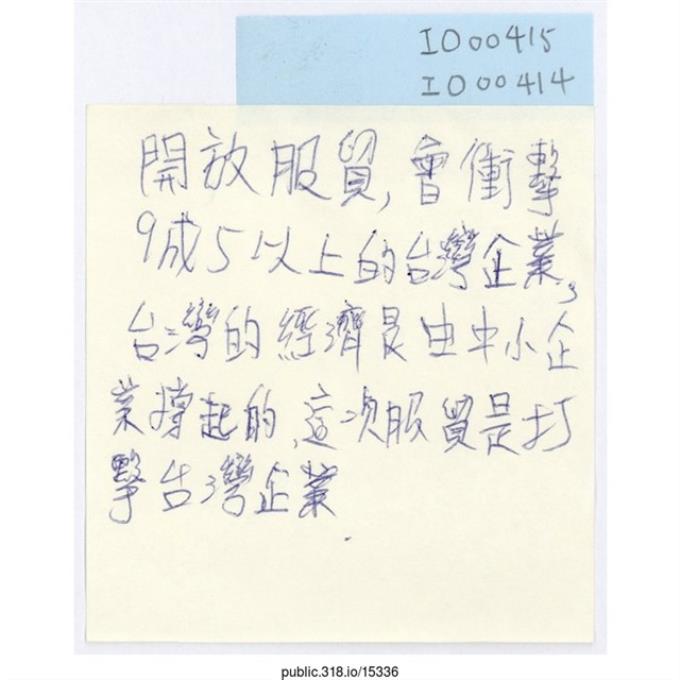 IO00415
IO00414
開放服貿,會衝擊
9成5以上的台灣企業,
台灣的經濟是由中小企
業撐起的,這次服貿是打
擊台灣企業.
public.318.io/15336